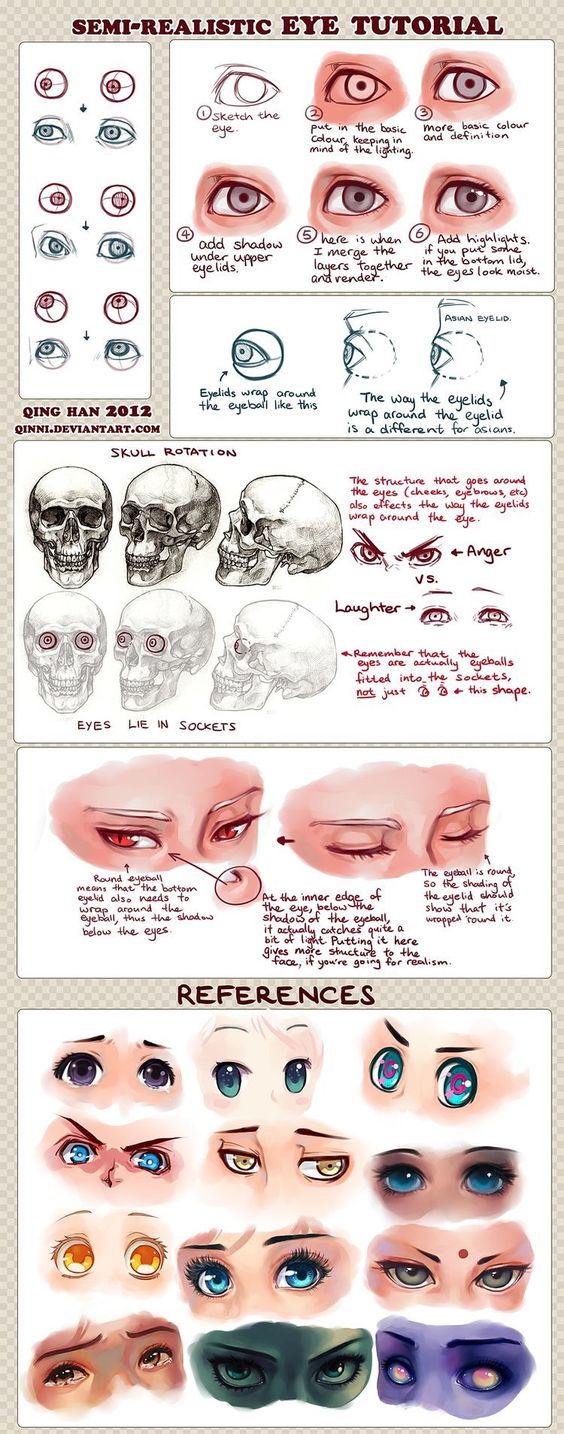 SEMI-REALISTIC EYE TUTORIAL
① Sketch the
eye.
② put in the basic
colour, keeping in
mind of the lighting.
③ more basic colour
and definition
④ add shadow
under upper
eyelids.
⑤ here is when
I merge the
layers together
and render.
⑥ Add highlights.
if you put some
in the bottom lid,
the eyes look moist.
QING HAN 2012
QINNI.DEVIANTART.COM
Eyelids wrap around
the eyeball like this
ASIAN EYELID.
The way the eyelids
wrap around the eyelid
is a different for asians.
SKULL ROTATION
The structure that goes around
the eyes (cheeks, eyebrows, etc)
also effects the way the eyelids
wrap around the eye.
← Anger
VS.
Laughter →
Remember that the
eyes are actually eyeballs
fitted into the sockets,
not just ← this shape.
EYES LIE IN SOCKETS
Round eyeball
means that the bottom
eyelid also needs to
wrap around the
eyeball, thus the shadow
below the eyes.
At the inner edge of
the eye, below the
shadow of the eyeball,
it actually catches quite a
bit of light. Putting it here
gives more stucture to the
face, if you're going for realism.
The eyeball is round,
so the shading of
the eyelid should
show that it's
wrapped 'round it.
REFERENCES